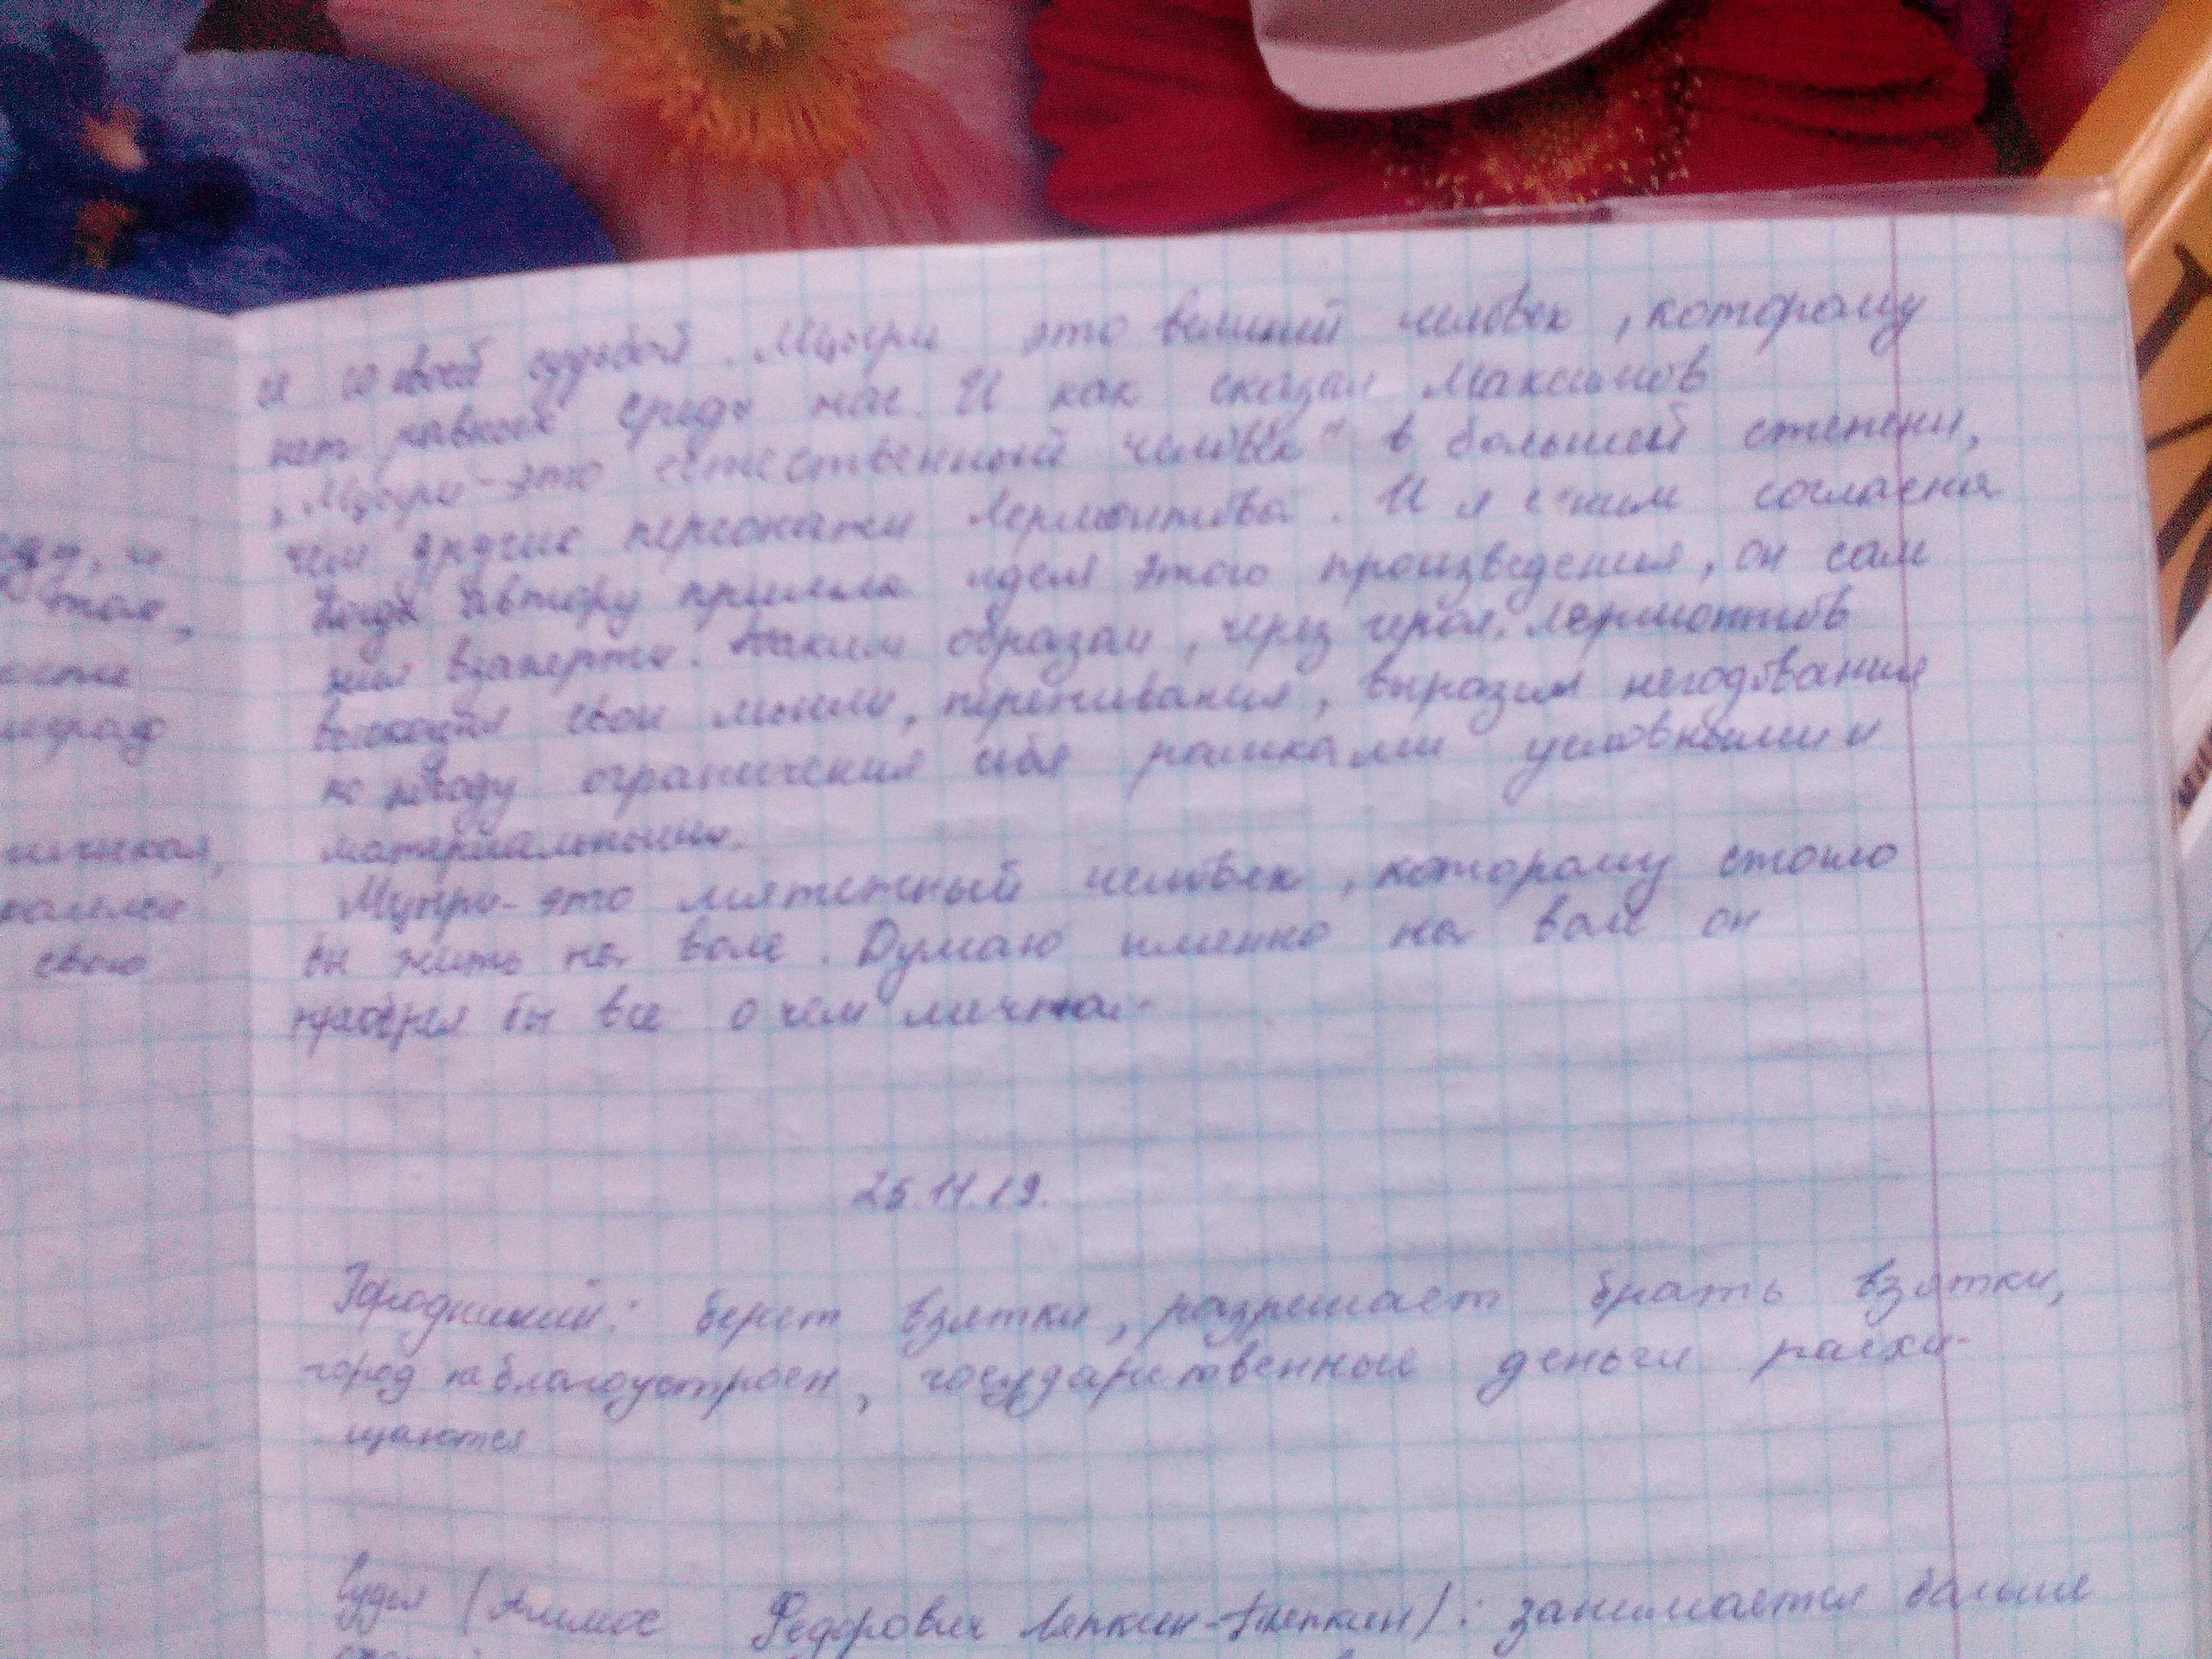 и со своей судьбой. Мцыри это великий человек, которому
нет равных среди нас. И как сказал Максимов
„Мцыри - это естественный человек" в большей степени,
чем другие персонажи Лермонтова. И я с ним согласна
Когда автору пришла идея этого произведения, он сам
был взаперти. Таким образом, через героя, Лермонтов
свои мысли, переживания, выразил негодования
по поводу ограничения себя рамками условными и
материальными.
Мцыри - это мятежный человек, которому стоило
бы жить на воле. Думаю именно на воле он
бы все о чем мечтал.
25.11.19.
Городничий: берет взятки, разрешает брать взятки,
город не благоустроен, государственные деньги расхи-
щаются
Судья (Аммос Федорович Ляпкин-Тяпкин): занимается больше
еди,
свою